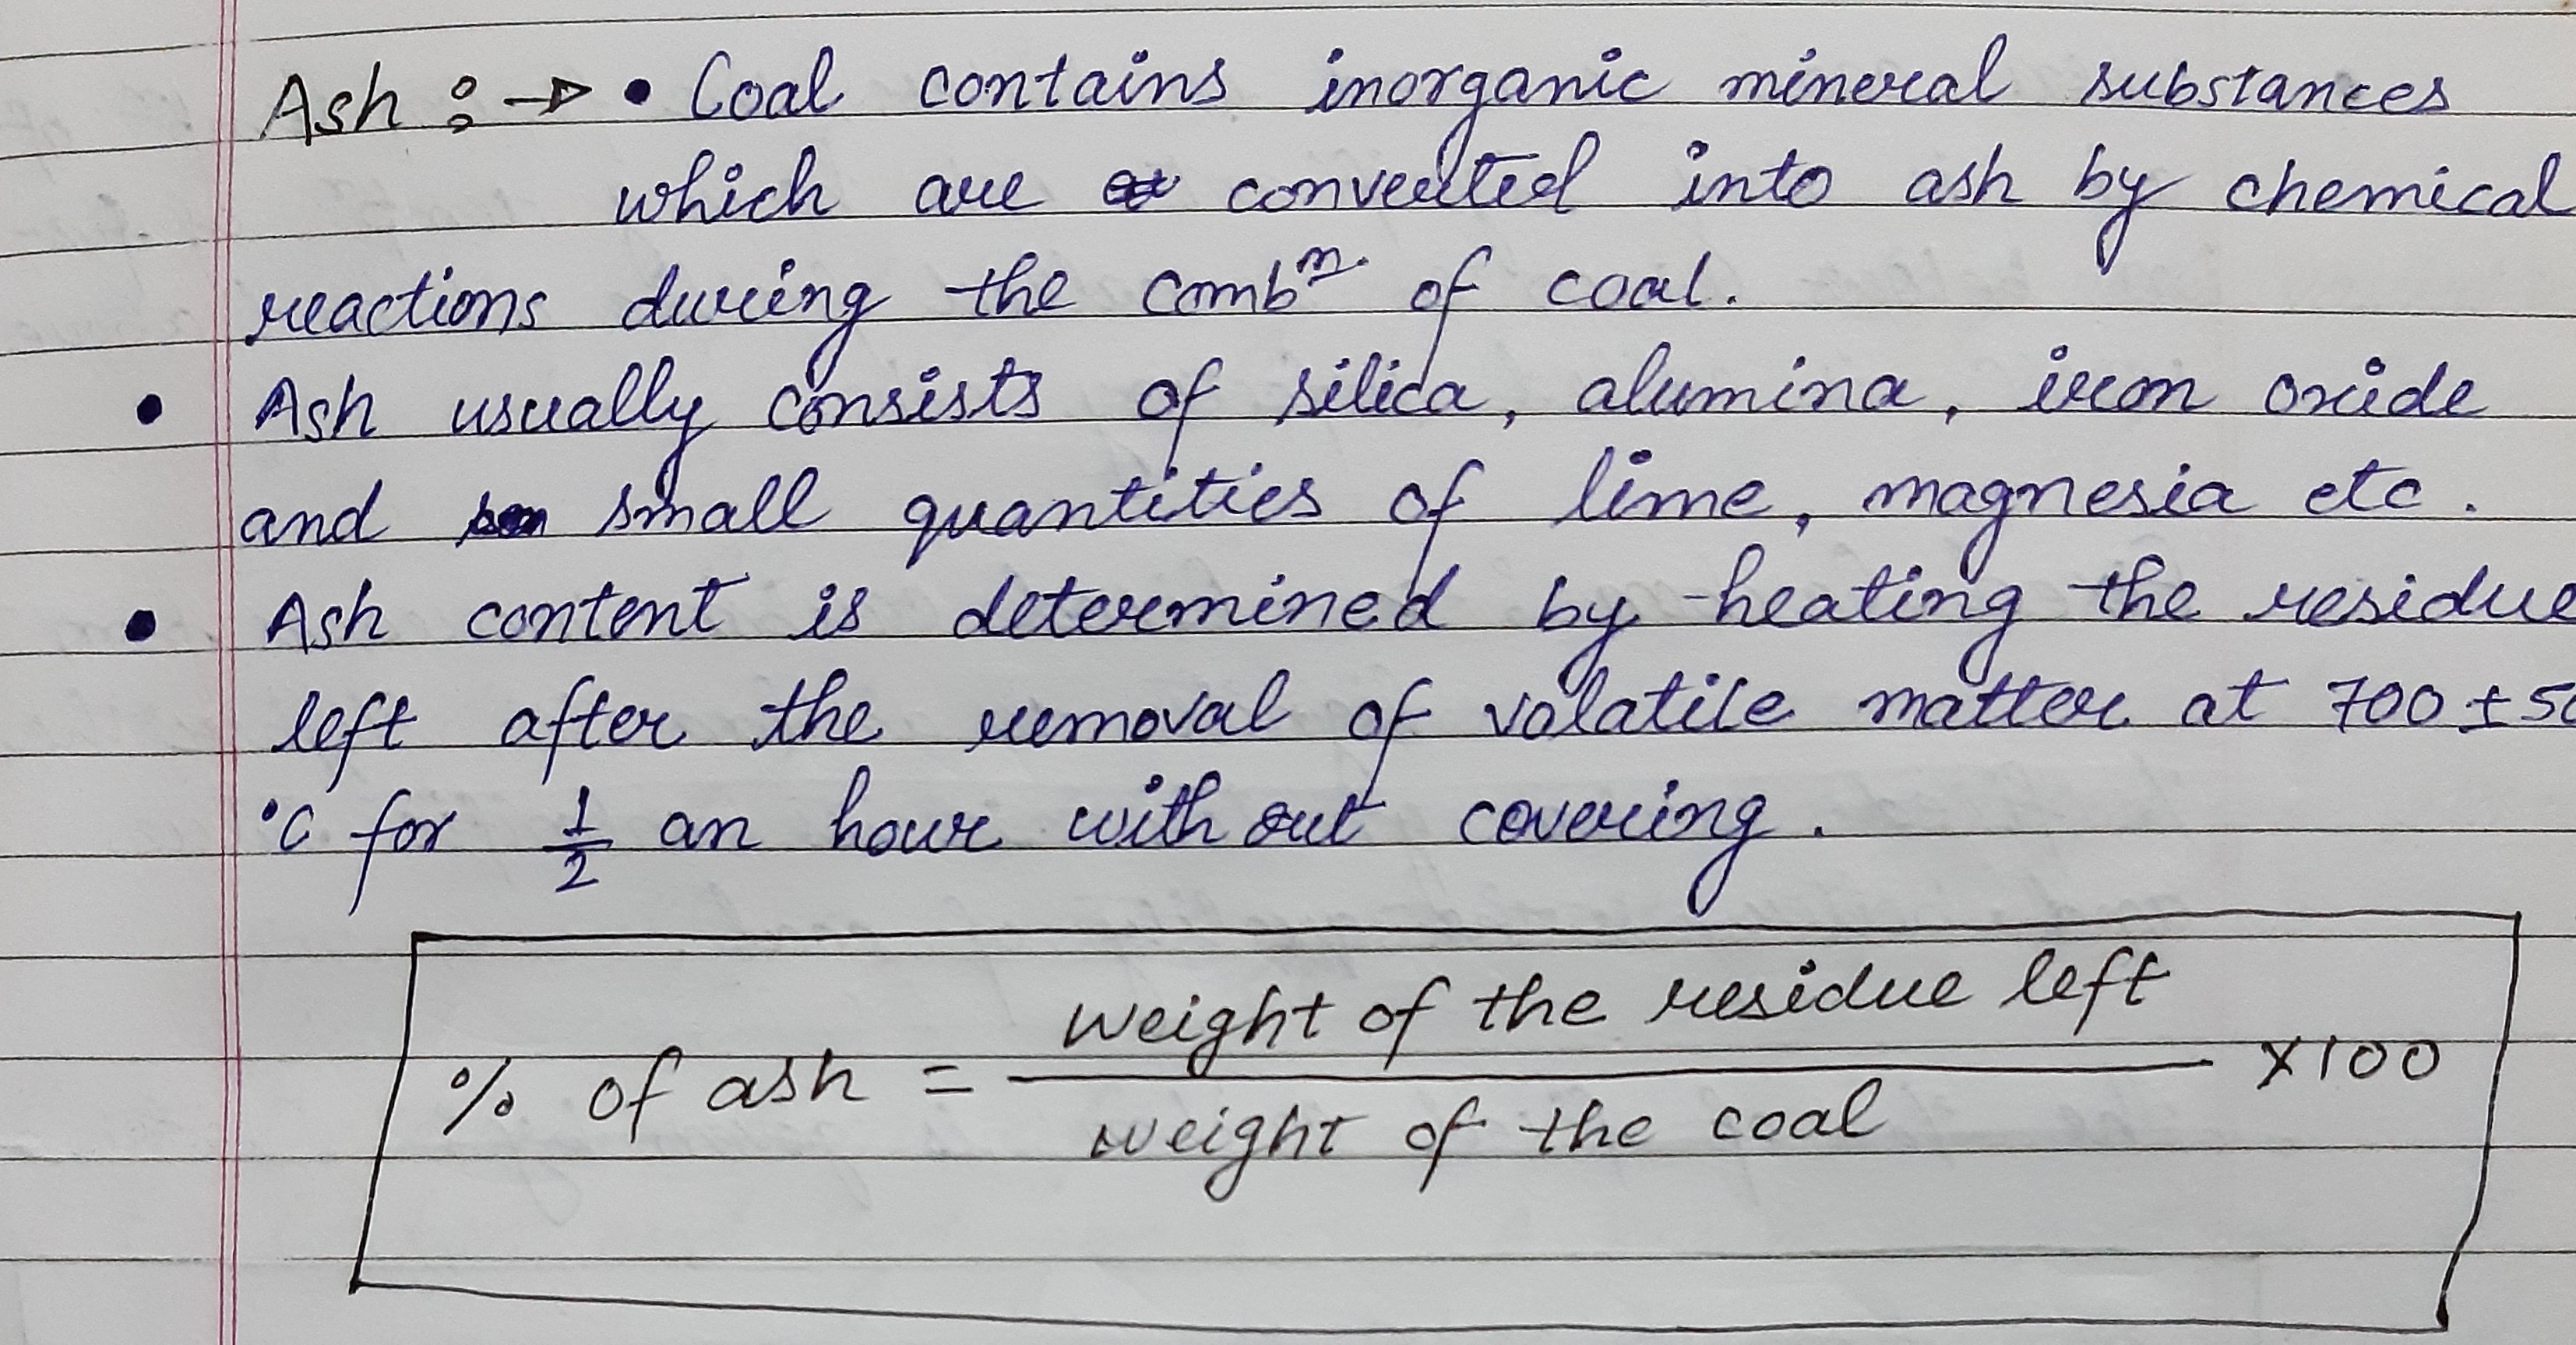 Ash :→ • Coal contains inorganic mineral substances
which are converted into ash by chemical
reactions during the combⁿ. of coal.
• Ash usually consists of silica, alumina, iron oxide
and small quantities of lime, magnesia etc.
• Ash content is determined by heating the residue
left after the removal of volatile matter at 700 ± 50
°C for 1/2 an hour with out covering.
% of ash = weight of the residue left / weight of the coal × 100